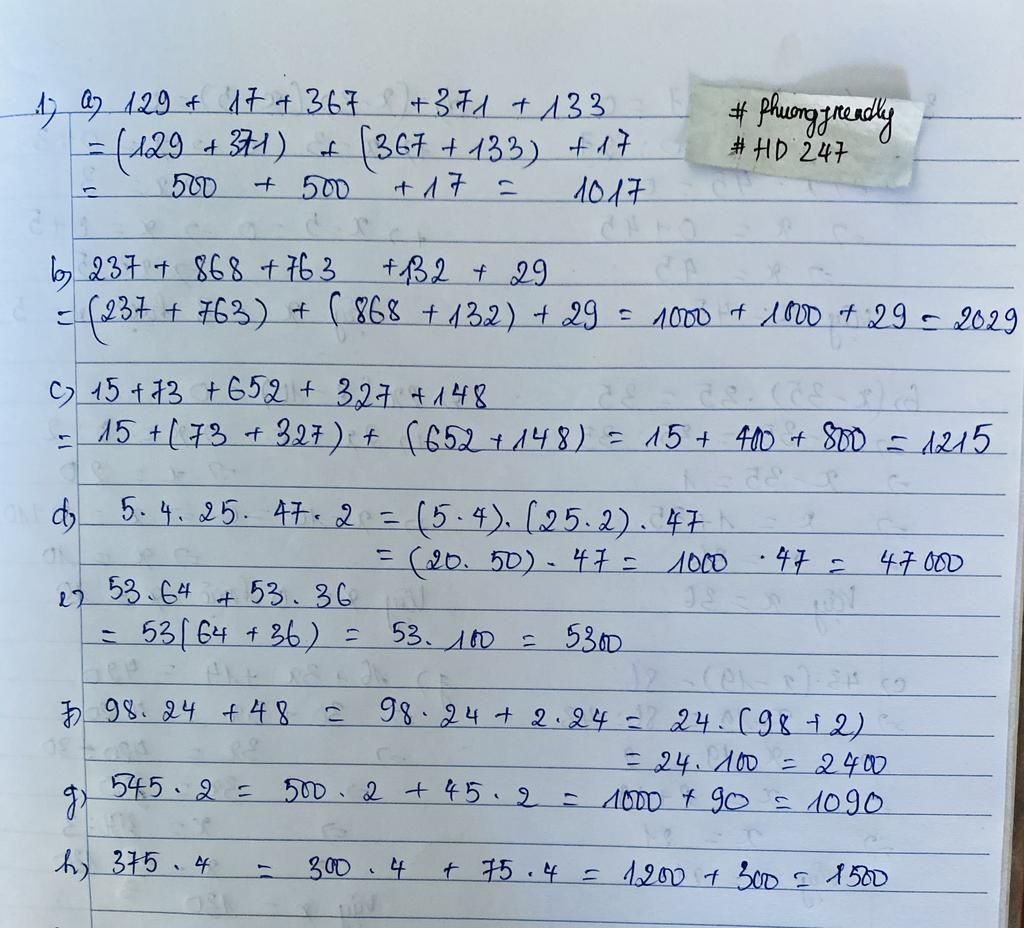 1) a) 129 + 17 + 367 + 371 + 133
= (129 + 371) + (367 + 133) + 17
= 500 + 500 + 17 = 1017
# phuongfreendly
# HD 247
b) 237 + 868 + 763 + 132 + 29
= (237 + 763) + (868 + 132) + 29 = 1000 + 1000 + 29 = 2029
c) 15 + 73 + 652 + 327 + 148
= 15 + (73 + 327) + (652 + 148) = 15 + 400 + 800 = 1215
d) 5 . 4 . 25 . 47 . 2 = (5 . 4) . (25 . 2) . 47
= (20 . 50) . 47 = 1000 . 47 = 47 000
e) 53 . 64 + 53 . 36
= 53 (64 + 36) = 53 . 100 = 5300
f) 98 . 24 + 48 = 98 . 24 + 2 . 24 = 24 . (98 + 2)
= 24 . 100 = 2400
g) 545 . 2 = 500 . 2 + 45 . 2 = 1000 + 90 = 1090
h) 375 . 4 = 300 . 4 + 75 . 4 = 1200 + 300 = 1500